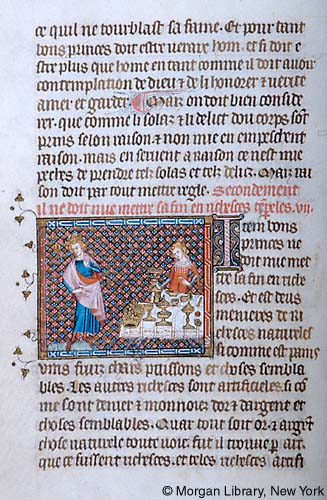 ce qui l ne tourblast sa faine. Et pour tant
bons princes doit estre uerais hom. et si doit e
stre plus que home en tant comme il doit auoir
contemplation de dieu z de li honorer z uerite
amer et garder. Maiz on doit bien conside
rer. que comme li solaz z li delict dou corps sōt
prins selon raison z non mie en empeschent
raison. mais en seruent a raison ce nest mie
pechies de prendre telz solas z telz deliz. Maiz rai
son doit par tout mettre regle. Secondement
il ne doit mie mettre sa fin en richeces tp̄eles. vii.
Item bons
princes ne
doit mie met
tre sa fin en riche
ces. Et est deus
menieres de ri
chesces naturelz
si comme est pains
vins fruiz chars poissons et choses sembla
bles. Les autres richesces sont artificieles. si cō
me sont denier z monnoiez dor z dargent et
choses semblables. Quar tout soit or. z argēt
chose naturele toute uoie fuit il trouue p̄ art.
que ce fussent richesces. et teles richesces artifi
© Morgan Library, New York